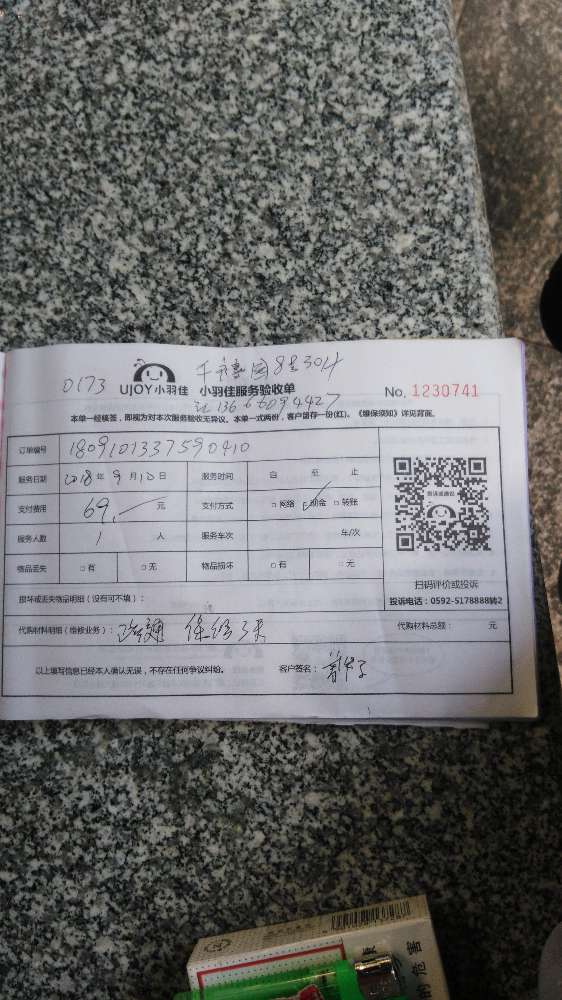 千禧园8#304
0173 UJOY小羽佳 小羽佳服务验收单 No. 1230741
13666094427
本单一经核签，即视为对本次服务验收无异议。本单一式两份，客户留存一份(红)。《维保须知》详见背面。
订单编号 1809101337590410
服务日期 2018年9月10日 服务时间 自 至 止
支付费用 69.元 支付方式 □网络 □现金 □转账
投诉或建议
服务人数 1人 服务车次 车/次
物品丢失 □有 □无 物品损坏 □有 □无
扫码评价或投诉
损坏或丢失物品明细（没有可不填）：
投诉电话：0592-5178888转2
代购材料明细（维修业务）： 保修3天 代购材料总额： 元
以上填写信息已经本人确认无误，不存在任何争议纠纷。 客户签名：
危害